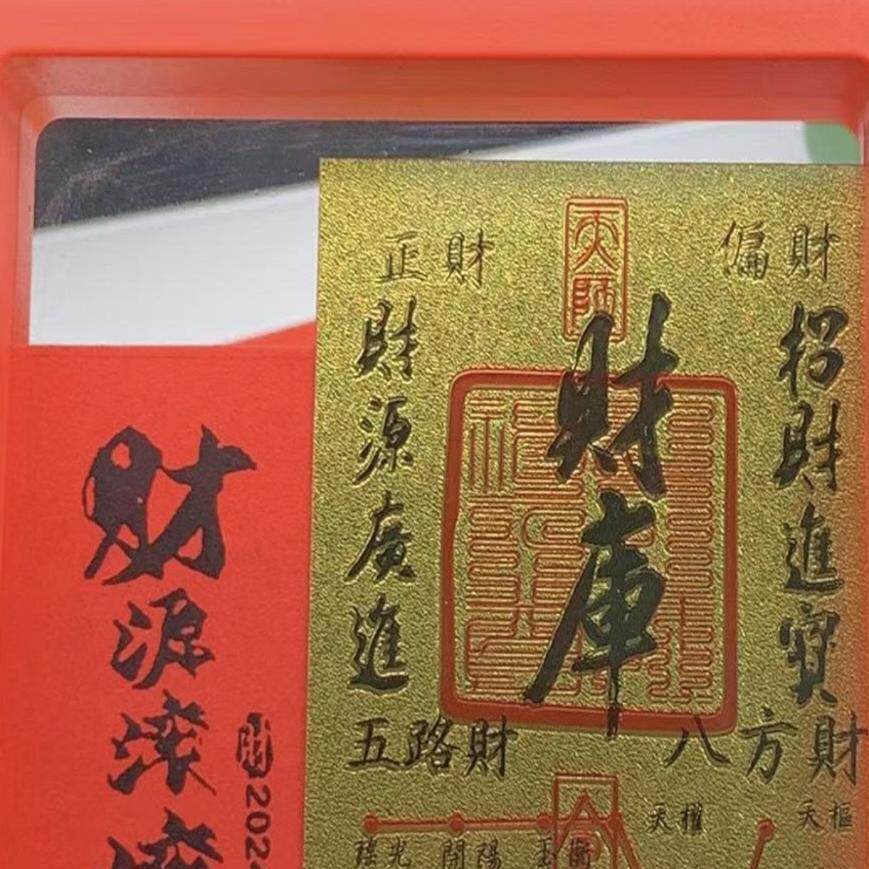 正財
天師
偏財
財源廣進
財庫
招財進寶
五路財
八方財
天權
天樞
瑤光
開陽
玉衡
財源滚滚
財
202